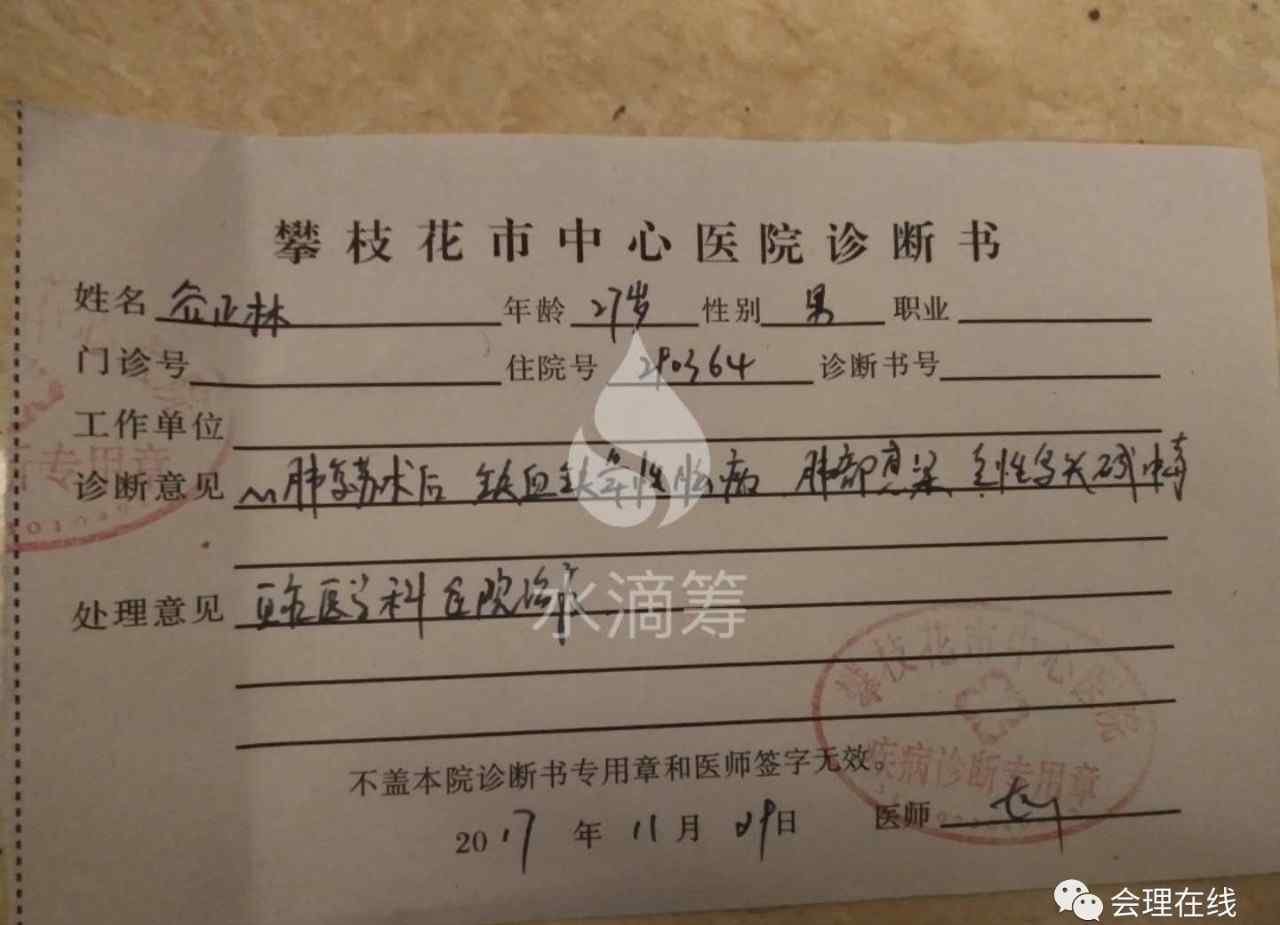 攀枝花市中心医院诊断书
姓名 正林 年龄 27岁 性别 男 职业
门诊号 住院号 290364 诊断书号
工作单位
诊断意见 心肺复苏术后 缺血缺氧性脑病 肺部感染 急性 中毒
处理意见 重症医学科住院治疗
不盖本院诊断书专用章和医师签字无效。
2017年11月29日 医师
攀枝花市中心医院
疾病诊断专用章
断专用章
水滴筹
会理在线